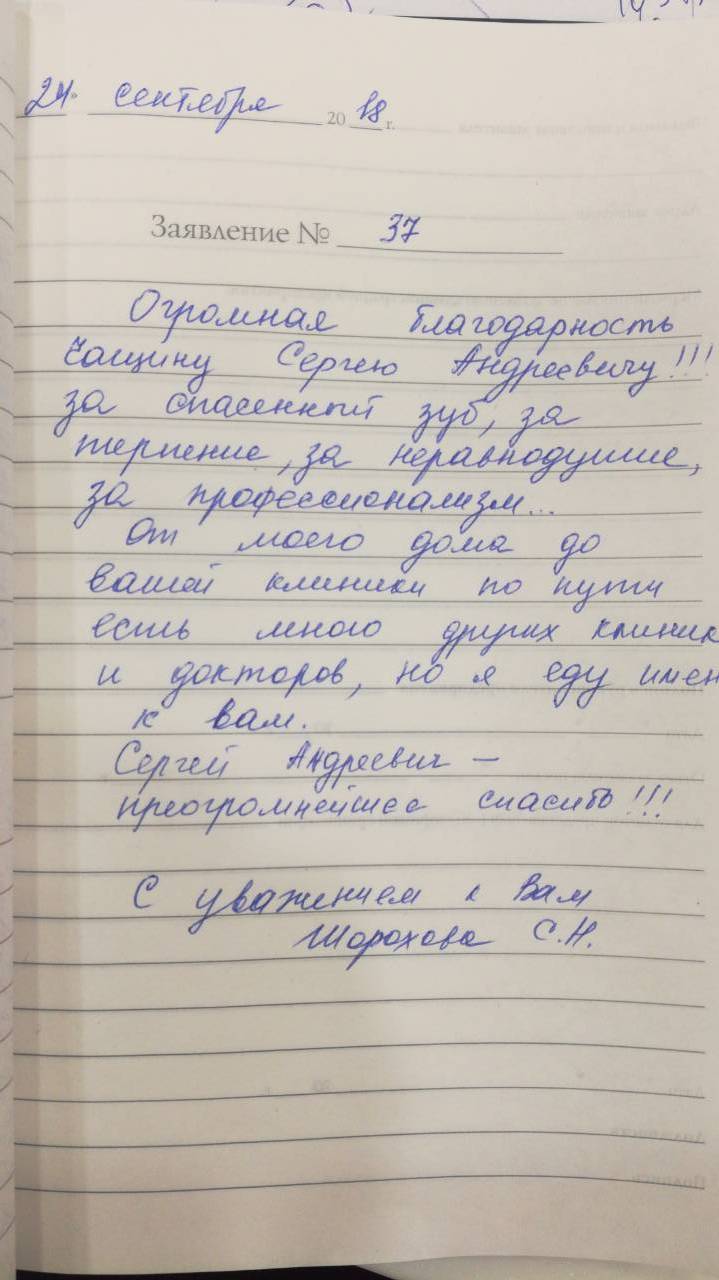 24» сентября 2018 г.
Заявление № 37
Огромная благодарность
Чащину Сергею Андреевичу!!!
за спасенный зуб, за
терпение, за неравнодушие,
за профессионализм...
От моего дома до
вашей клиники по пути
есть много других клиник
и докторов, но я еду имен
к вам.
Сергей Андреевич –
преогромнейшее спасибо!!!
С уважением к Вам
Шорохова С.Н.